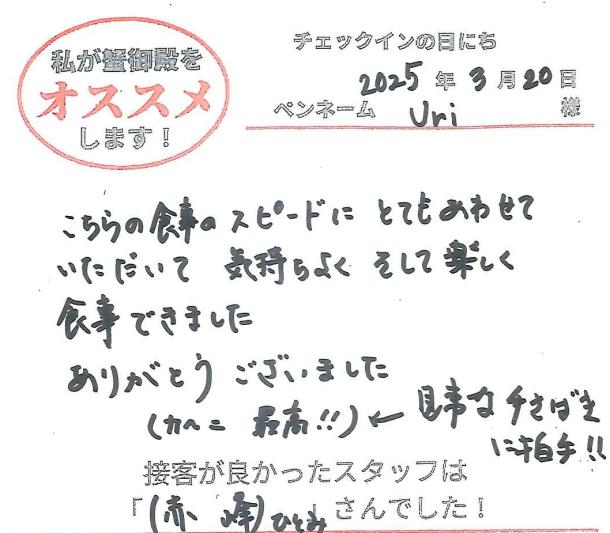 私が蟹御殿を
オススメ
します！
チェックインの日にち
2025年3月20日
ペンネーム Uri 様
こちらの食事のスピードに とてもあわせて
いただいて 気持ちよく そして楽しく
食事できました
ありがとうございました
(カヘニ 最高!!) ← 見事な手さばき
に拍手!!
接客が良かったスタッフは
「(赤 峰)ひとみ」さんでした！